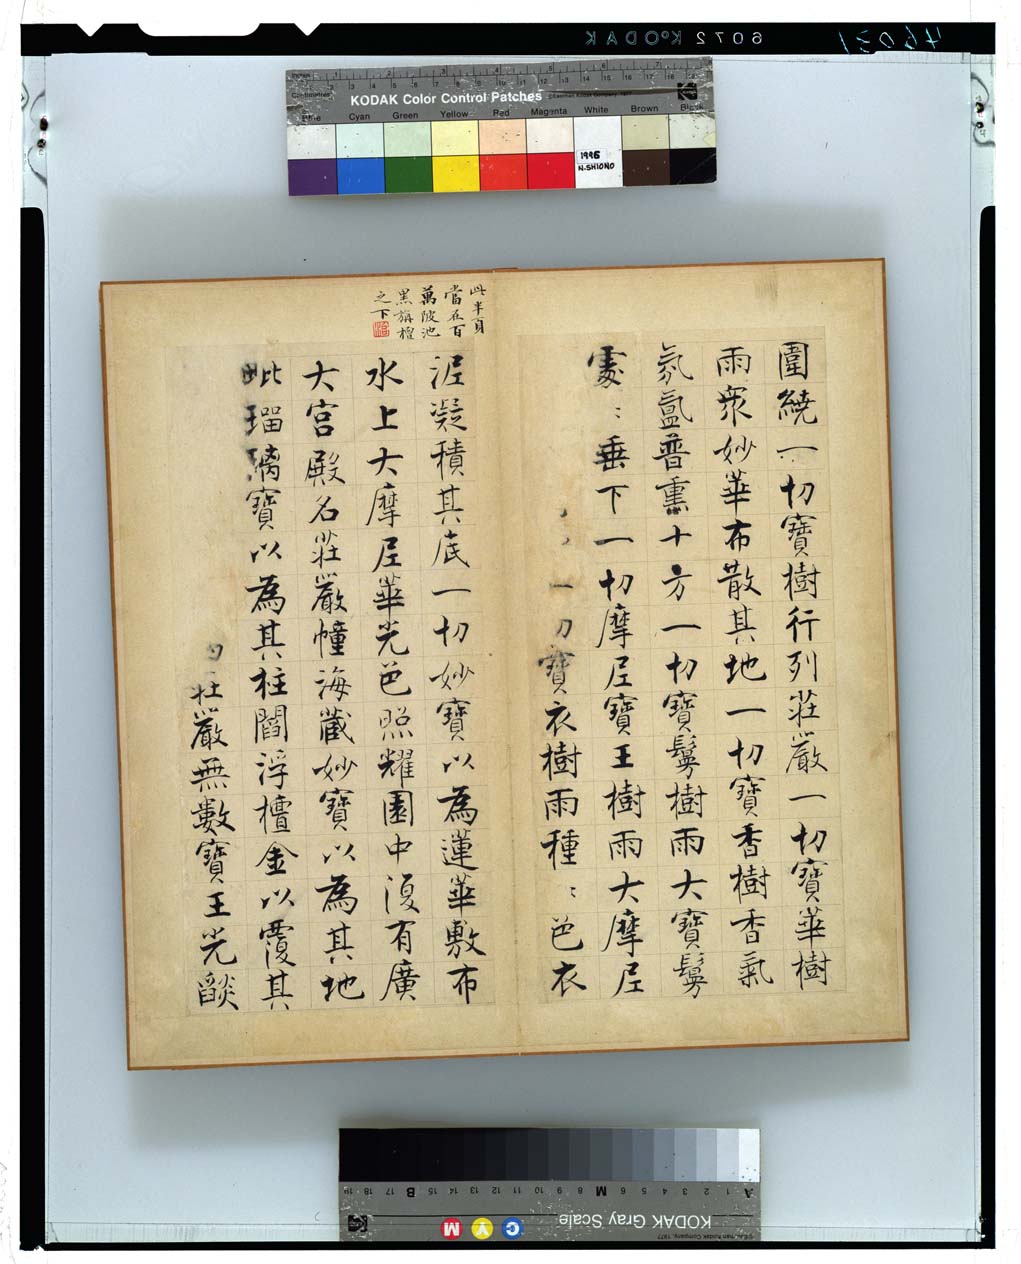 46031
6072 KODAK
KODAK Color Control Patches
Blue Cyan Green Yellow Red Magenta White Brown Black
1996
N.SHIONO
圍繞一切寶樹行列莊嚴一切寶華樹
雨眾妙華布散其地一切寶香樹香氣
氛氳普熏十方一切寶鬘樹雨大寶鬘
處〻垂下一切摩尼寶王樹雨大摩尼
一切寶衣樹雨種〻色衣
此半頁
當在百
萬陂池
黑旃檀
之下
泥凝積其底一切妙寶以為蓮華敷布
水上大摩尼華光色照耀園中復有廣
大宮殿名莊嚴幢海藏妙寶以為其地
毗瑠璃寶以為其柱閻浮檀金以覆其
莊嚴無數寶王光燄
KODAK Gray Scale
C Y M